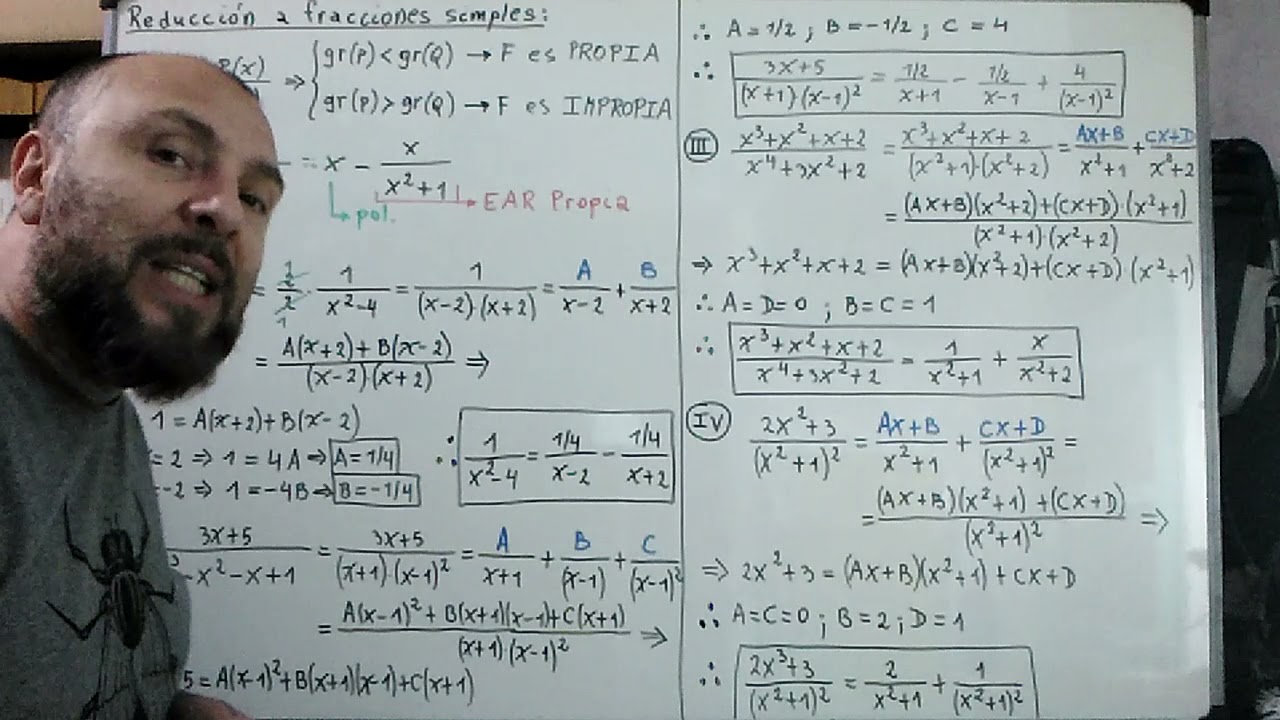 Reducción a fracciones simples:
P(x) ⇒ { gr(P) < gr(Q) → F es PROPIA
gr(P) > gr(Q) → F es IMPROPIA
= x - x/(x²+1)
pol. EAR Propia
= 2/2 · 1/(x²-4) = 1/((x-2)·(x+2)) = A/(x-2) + B/(x+2)
1
= (A(x+2)+B(x-2))/((x-2)·(x+2)) ⇒
1 = A(x+2)+B(x-2)
= 2 ⇒ 1 = 4A → A = 1/4
-2 ⇒ 1 = -4B → B = -1/4
∴ 1/(x²-4) = (1/4)/(x-2) - (1/4)/(x+2)
(3x+5)/(³-x²-x+1) = (3x+5)/((x+1)·(x-1)²) = A/(x+1) + B/(x-1) + C/(x-1)²
= (A(x-1)²+B(x+1)(x-1)+C(x+1))/((x+1)·(x-1)²) ⇒
5 = A(x-1)²+B(x+1)(x-1)+C(x+1)
∴ A = 1/2 ; B = -1/2 ; C = 4
∴ (3x+5)/((x+1)·(x-1)²) = (1/2)/(x+1) - (1/2)/(x-1) + 4/(x-1)²
III (x³+x²+x+2)/(x⁴+3x²+2) = (x³+x²+x+2)/((x²+1)·(x²+2)) = (Ax+B)/(x²+1) + (Cx+D)/(x²+2)
= ((Ax+B)(x²+2)+(Cx+D)·(x²+1))/((x²+1)·(x²+2))
⇒ x³+x²+x+2 = (Ax+B)(x²+2)+(Cx+D)·(x²+1)
∴ A = D = 0 ; B = C = 1
∴ (x³+x²+x+2)/(x⁴+3x²+2) = 1/(x²+1) + x/(x²+2)
IV (2x²+3)/(x²+1)² = (Ax+B)/(x²+1) + (Cx+D)/(x²+1)² =
= ((Ax+B)(x²+1)+(Cx+D))/(x²+1)² ⇒
⇒ 2x²+3 = (Ax+B)(x²+1)+Cx+D
∴ A = C = 0 ; B = 2 ; D = 1
∴ (2x³+3)/(x²+1)² = 2/(x²+1) + 1/(x²+1)²